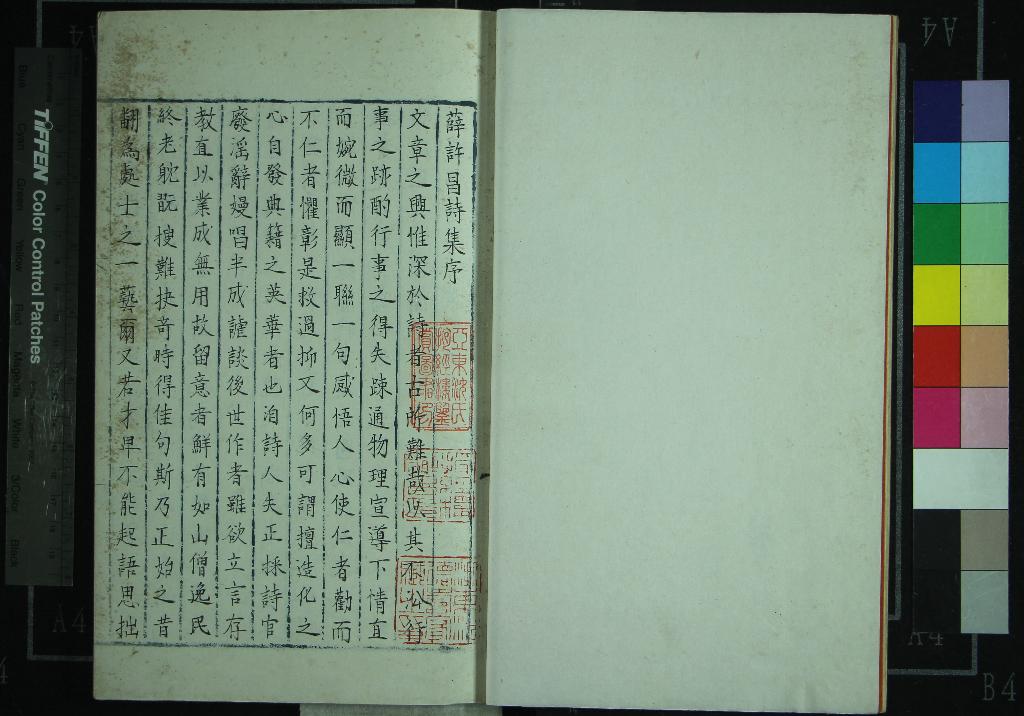 薛許昌詩集序
文章之興惟深於詩者古所難哉以其不公行
事之跡酌行事之得失疎通物理宣導下情直
而婉微而顯一聯一句感悟人心使仁者勸而
不仁者懼彰是救過抑又何多可謂擅造化之
心自發典籍之英華者也洎詩人失正採詩官
廢滛辭嫚唱半成謔談後世作者雖欲立言存
教直以業成無用故留意者鮮有如山僧逸民
終老躭翫搜難抉奇時得佳句斯乃正始之昔
翻為處士之一藝爾又若才早不能起語思拙
TIFFEN Color Control Patches
Blue Cyan Green Yellow Red Magenta White 3/Color Black
A4
A4
A4
B4